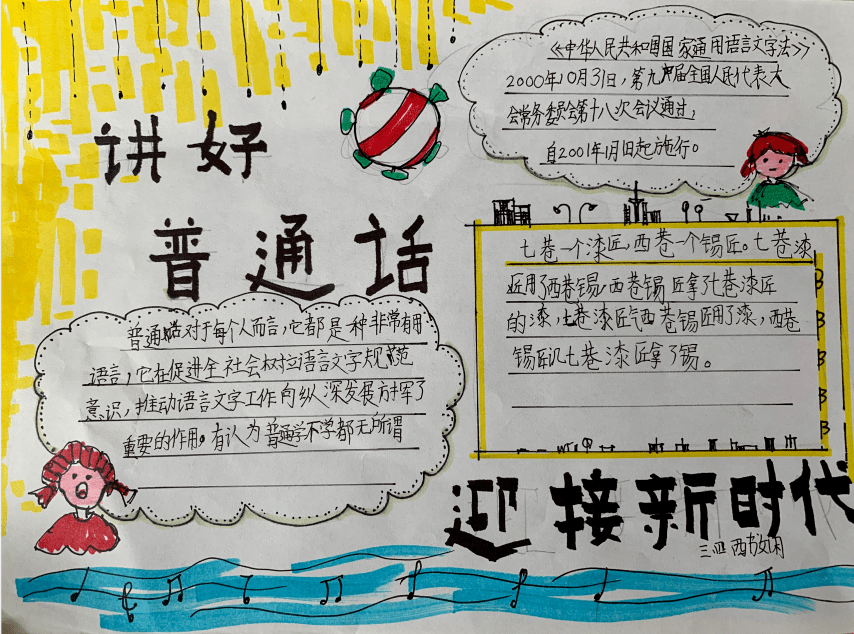 讲好
普通话
《中华人民共和国国家通用语言文字法》
2000年10月31日,第九届全国人民代表大
会常务委员会第十八次会议通过,
自2001年1月1日起施行。
七巷一个漆匠,西巷一个锡匠。七巷漆
匠用了西巷锡,西巷锡匠拿了七巷漆匠
的漆,七巷漆匠气西巷锡匠用了漆,西巷
锡匠讥七巷漆匠拿了锡。
普通话对于每个人而言,它都是一种非常有用
语言,它在促进全社会树立语言文字规范
意识,推动语言文字工作向纵深发展方挥了
重要的作用。有认为普通学不学都无所谓
迎接新时代
三四